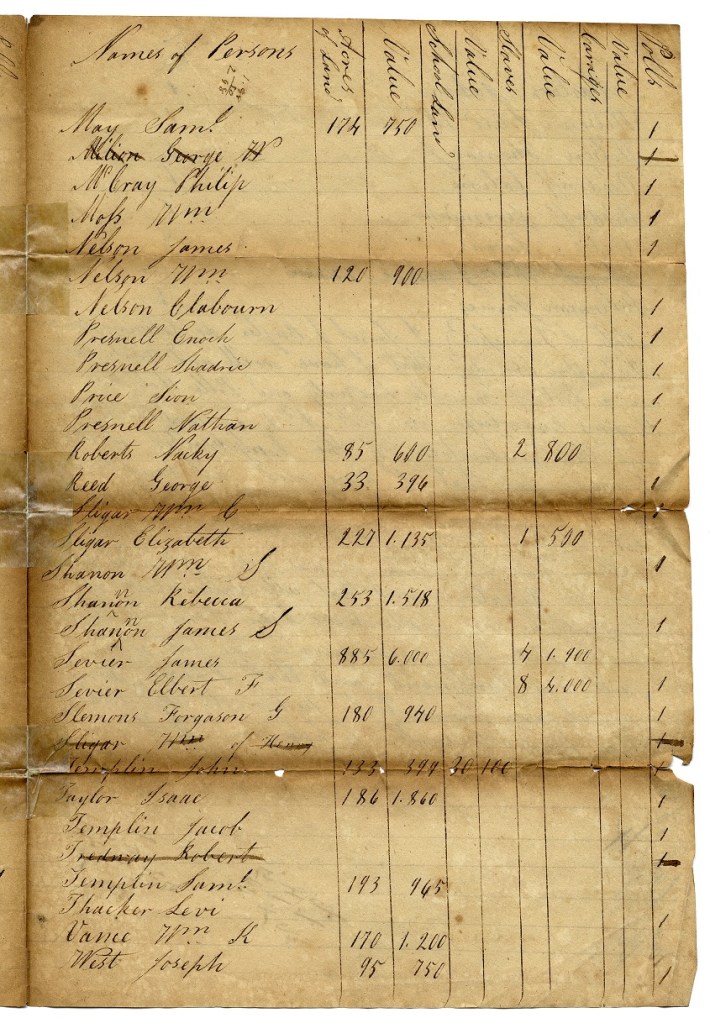 Names of Persons Acres of Land Value School Land Value Slaves Value Carages Value Polls
May Saml. 174 750 1
George W 1
McCray Philip 1
Moss Wm 1
Nelson James 1
Nelson Wm 120 900
Nelson Clabourn 1
Presnell Enoch 1
Presnell Shadric 1
Price Sion 1
Presnell Nathan 1
Roberts Nacky 85 600 2 800
Reed George 33 396 1
Sligar Wm C 1
Sligar Elizabeth 227 1.135 1 500
Shanon Wm S 1
Shannon Rebecca 253 1.518
Shannon James S 1
Sevier James 885 6.000 4 1.900
Sevier Elbert F 8 4.000 1
Slemons Forgason G 180 940 1
Sligar Wm of Henry 1
Templin John 133 399 20 100 1
Taylor Isaac 186 1.860 1
Templin Jacob 1
Tredway Robert 1
Templin Saml. 193 965
Thacker Levi 1
Vance Wm K 170 1.200
West Joseph 95 750 1